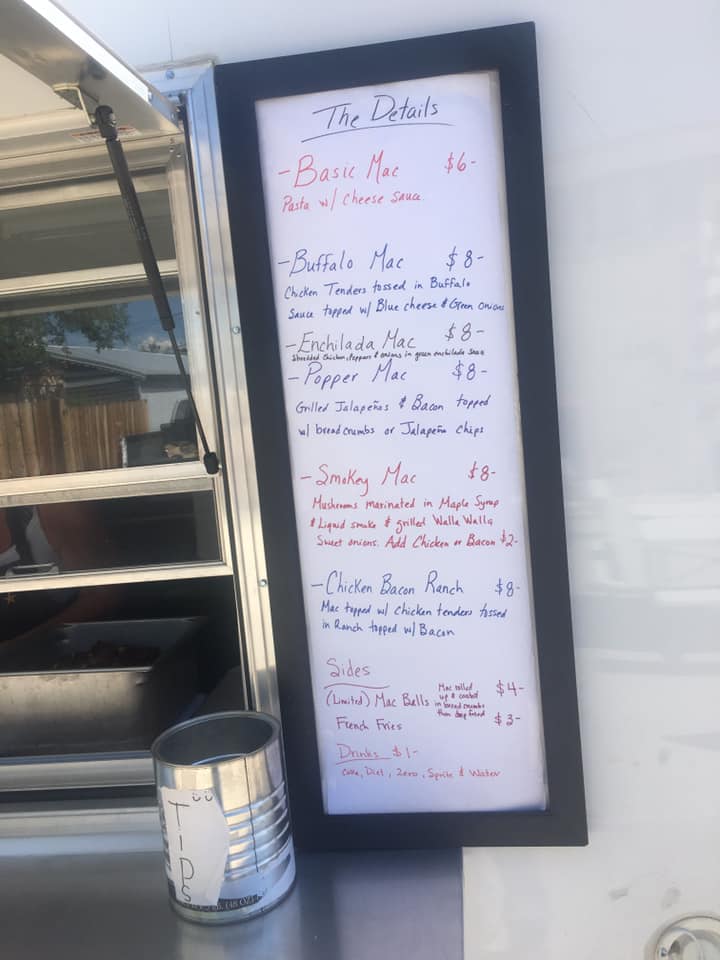 The Details
- Basic Mac $6-
Pasta w/ Cheese Sauce.
- Buffalo Mac $8-
Chicken Tenders tossed in Buffalo
Sauce topped w/ Blue cheese & Green onions
- Enchilada Mac $8-
Shredded Chicken, Peppers & onions in green enchilada sauce
- Popper Mac $8-
Grilled Jalapeños & Bacon topped
w/ bread crumbs or Jalapeño chips
- Smokey Mac $8-
Mushrooms marinated in Maple Syrup
& Liquid smoke & grilled Walla Walla
Sweet onions. Add Chicken or Bacon $2-
- Chicken Bacon Ranch $8-
Mac topped w/ Chicken tenders tossed
in Ranch topped w/ Bacon
Sides
(Limited) Mac Balls Mac rolled up & coated in bread crumbs then deep fried $4-
French Fries $3-
Drinks $1-
Coke, Diet, Zero, Sprite & Water
TIPS